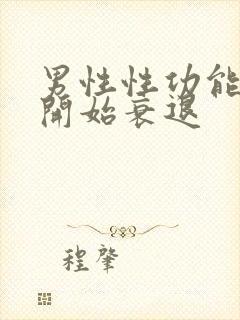 男性性功能
開始衰退
程肇